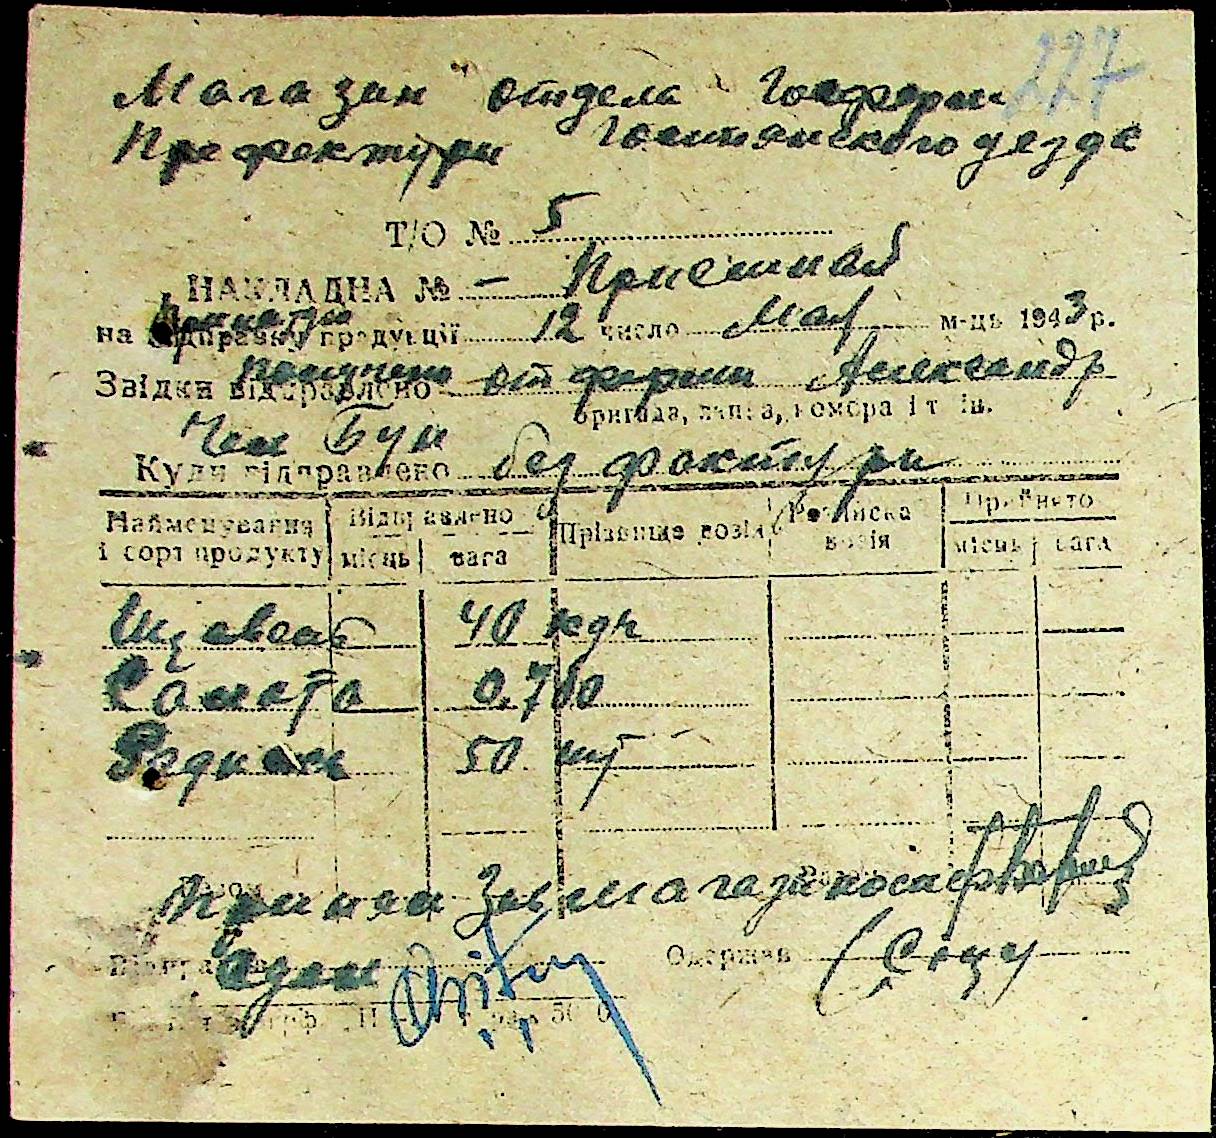 227
Магазин отдела Госферми
Префектури Голтянского уезда
Т/О № 5
НАКЛАДНА № – Приемная
на відправку продукції 12 число Мая м-ць 1943 р.
Звідки відправлено получено от ферми Александр
бригада, ланка, комора і т. ін.
Куди відправлено без фактури
Найменування і сорт продукту
Відправлено
місць вага
Прізвище возія
Розписка возія
Прийнято
місць вага
Щавель 40 кгч
Салата 0.700
Редиски 50 шт
Принял Зав магазином
Відправив Сдал
Одержав